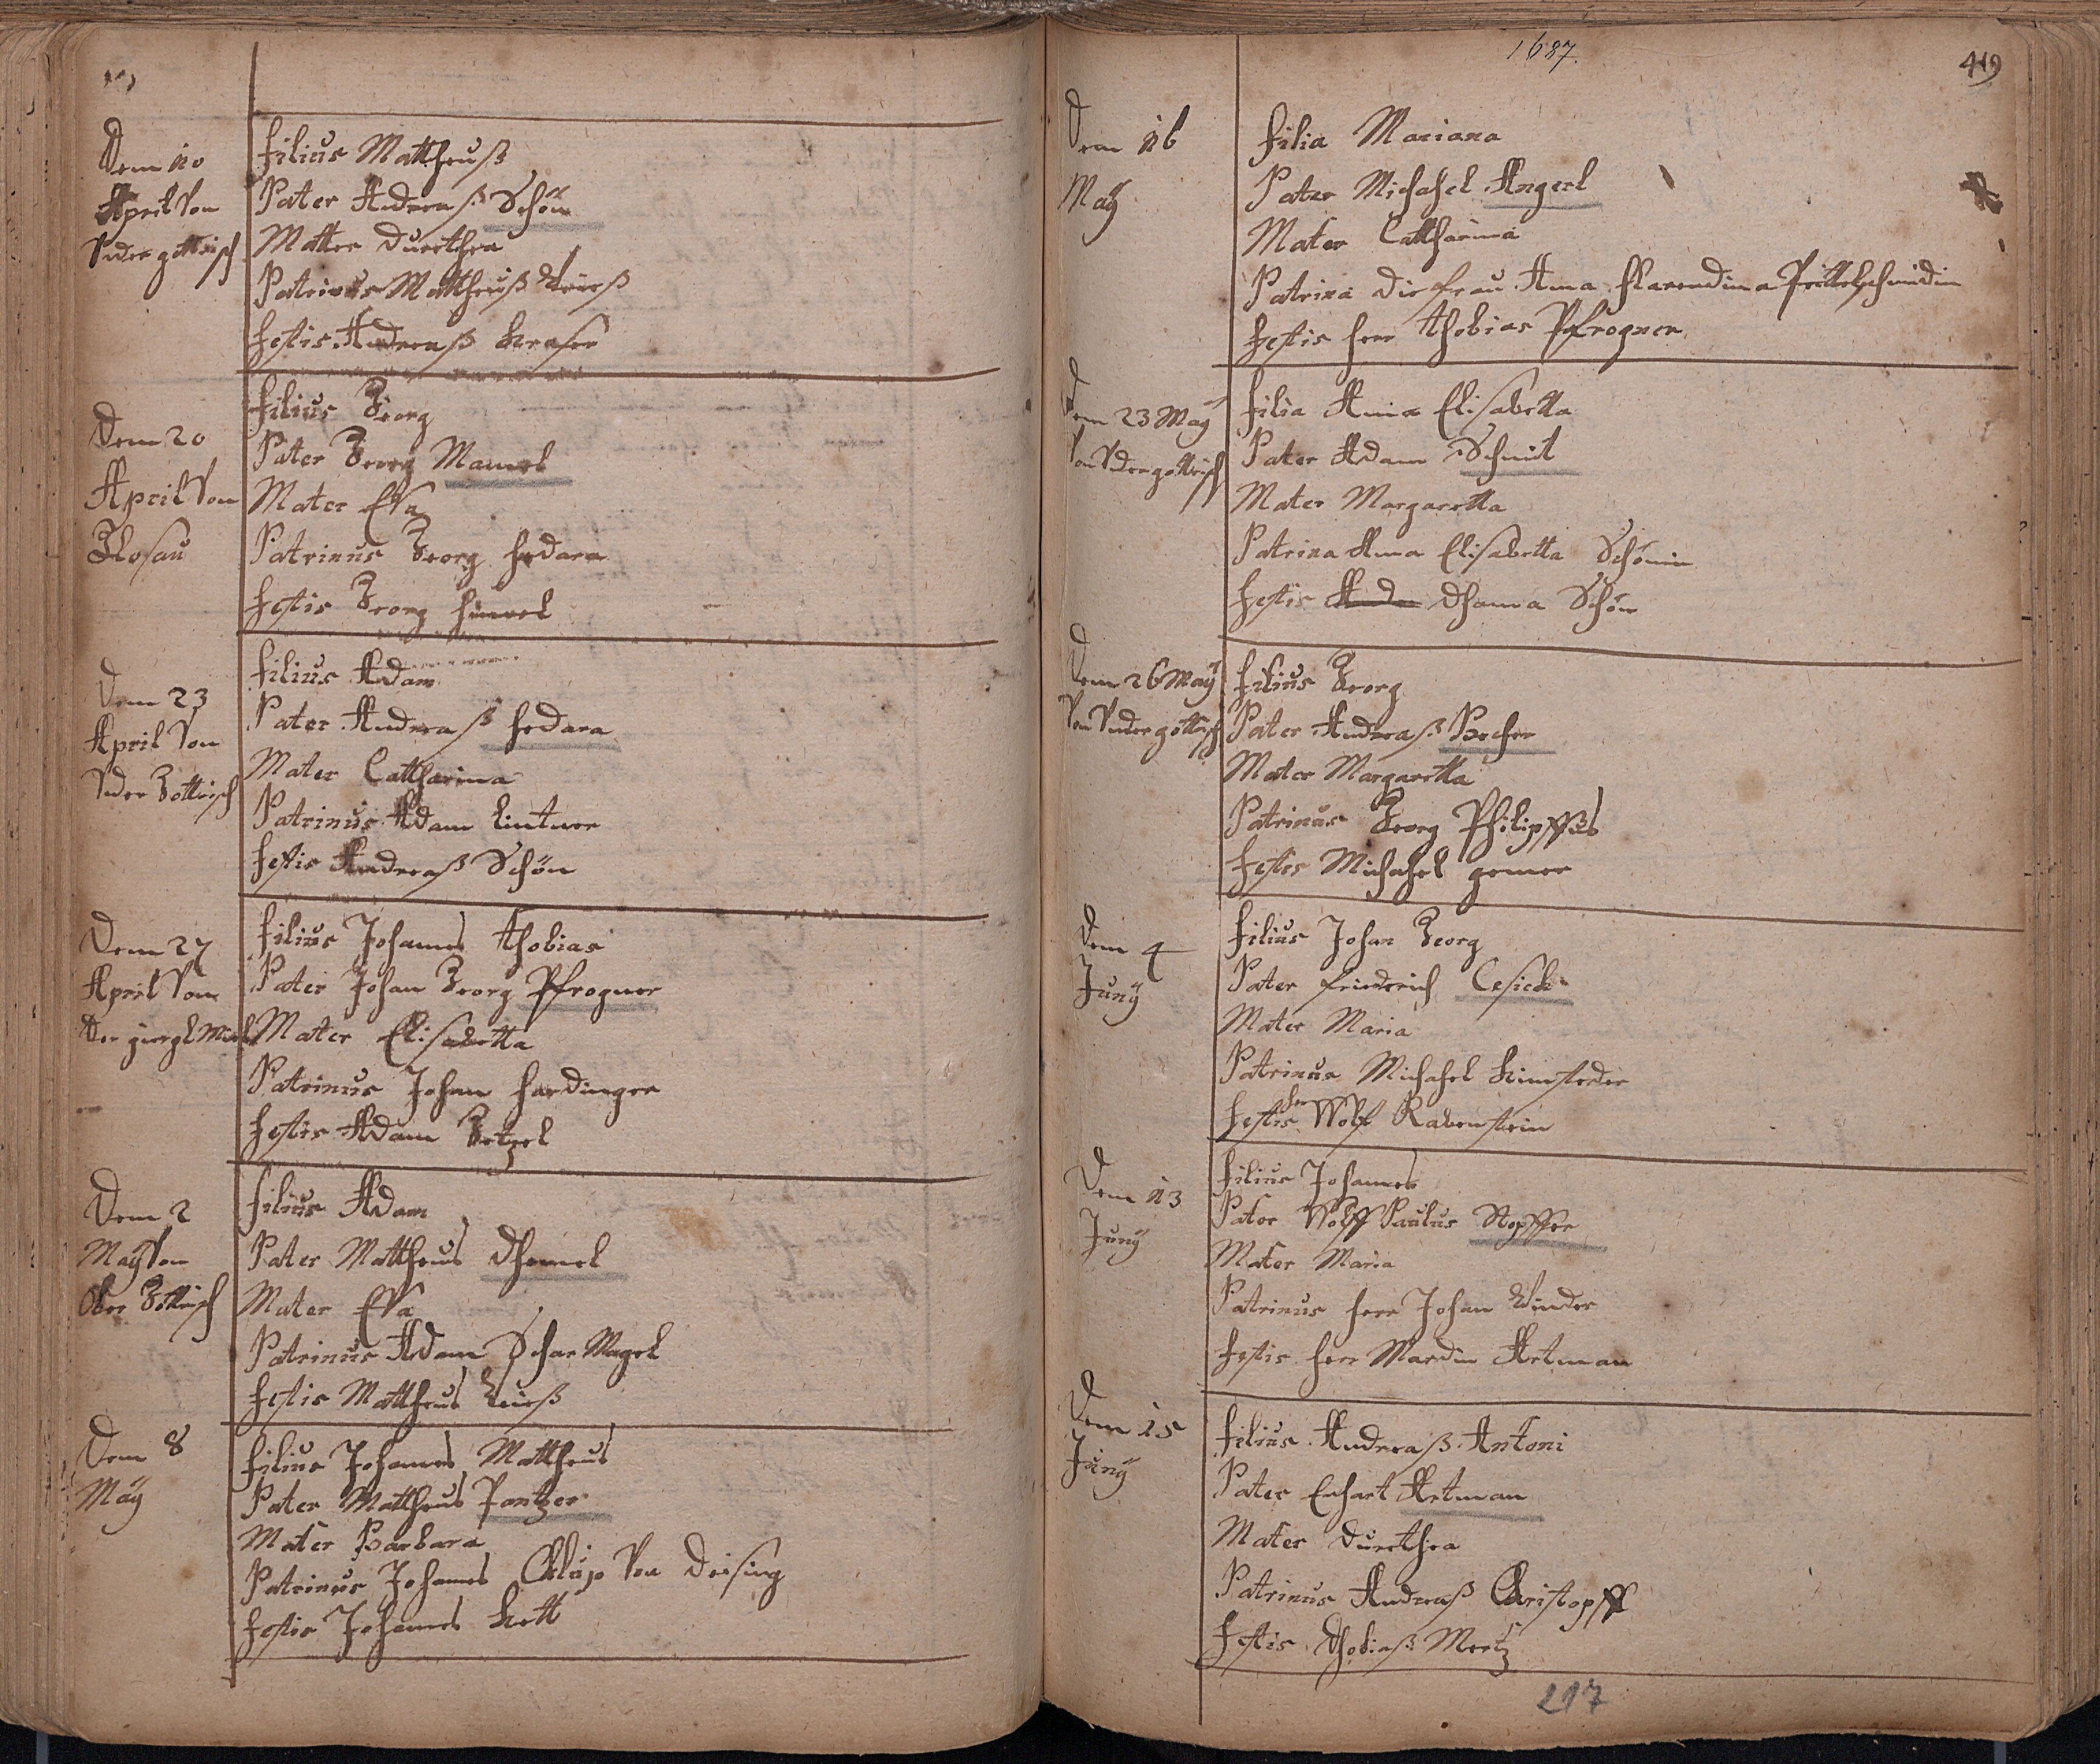 Dem 10
April Von
Vndergottrisch
Filius Mattheuß
Pater Andreaß Schön
Matter Durethea
Patrinus Mattheuß
Testis Andreaß
Dem 20
April Von
Glosau
Filius Georg
Pater Georg Mannel
Mater Eva
Patrinus Georg Hedara
Testis Georg
Dem 23
April Von
Vnder Gottrisch
Filius Adam
Pater Andreaß Hedara
Mater Cattharina
Patrinus Adam Lintner
Testis Andreaß Schön
Dem 27
April Von
Der
Filius Johannes Thobias
Pater Johan Georg Pfrogner
Mater Elisabetta
Patrinus Johan Hardinger
Testis Adam Getzel
Dem 2
May Von
Ober Gottrisch
Filius Adam
Pater Mattheus Dhomel
Mater Eva
Patrinus Adam
Testis Mattheus
Dem 8
May
Filius Johannes Mattheus
Pater Mattheus Pantzer
Mater Barbara
Patrinus Johannes Von Deising
Testis Johannes Kott
1687.
419
Dem 16
May
Filia Mariana
Pater Michahel Angerl
Mater Cattharina
Patrina Die frau Anna
Testis Herr Thobias Pfrogner
Dem 23 May
Von Vndergottrisch
Filia Anna Elisabetta
Pater Adam Schmit
Mater Margaretta
Patrina Anna Elisabetta Schönin
Testis Dhama Schön
Dem 26 May
Von Vndergottrisch
Filius Georg
Pater Andreaß Becher
Mater Margaretta
Patrinus Georg
Testes Michahel
Dem 4
Juny
Filius Johan Georg
Pater Friederich Cesick
Mater Maria
Patrinus Michahel
Testis Herr Wolf Rabenstein
Dem 13
Juny
Filius Johannes
Pater Wolff Paulus Stopffer
Mater Maria
Patrinus Herr Johan
Testis Herr Mardin Artman
Dem 15
Juny
Filius Andreaß Antoni
Pater Erhart Artman
Mater Durethea
Patrinus Andreaß Christopff
Testis Thobiaß Mertz
217